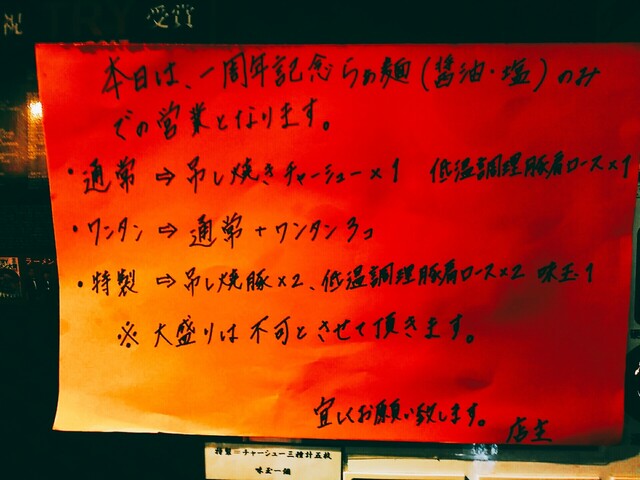 受賞
本日は、一周年記念らぁ麺(醤油・塩)のみ
での営業となります。
・通常 ⇨ 吊し焼きチャーシュー×1 低温調理豚肩ロース×1
・ワンタン ⇨ 通常+ワンタン3コ
・特製 ⇨ 吊し焼豚×2、低温調理豚肩ロース×2 味玉・1
※ 大盛りは不可とさせて頂きます。
宜しくお願い致します。 店主
ラーメン
特製=チャーシュー三種計五枚
味玉一個